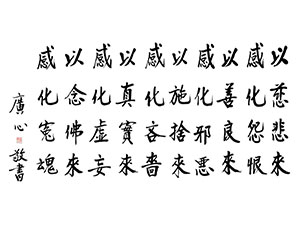 以慈悲來
感化怨恨
以善良來
感化邪惡
以施捨來
感化吝嗇
以真實來
感化虛妄
以念佛來
感化冤魂
廣心敬書